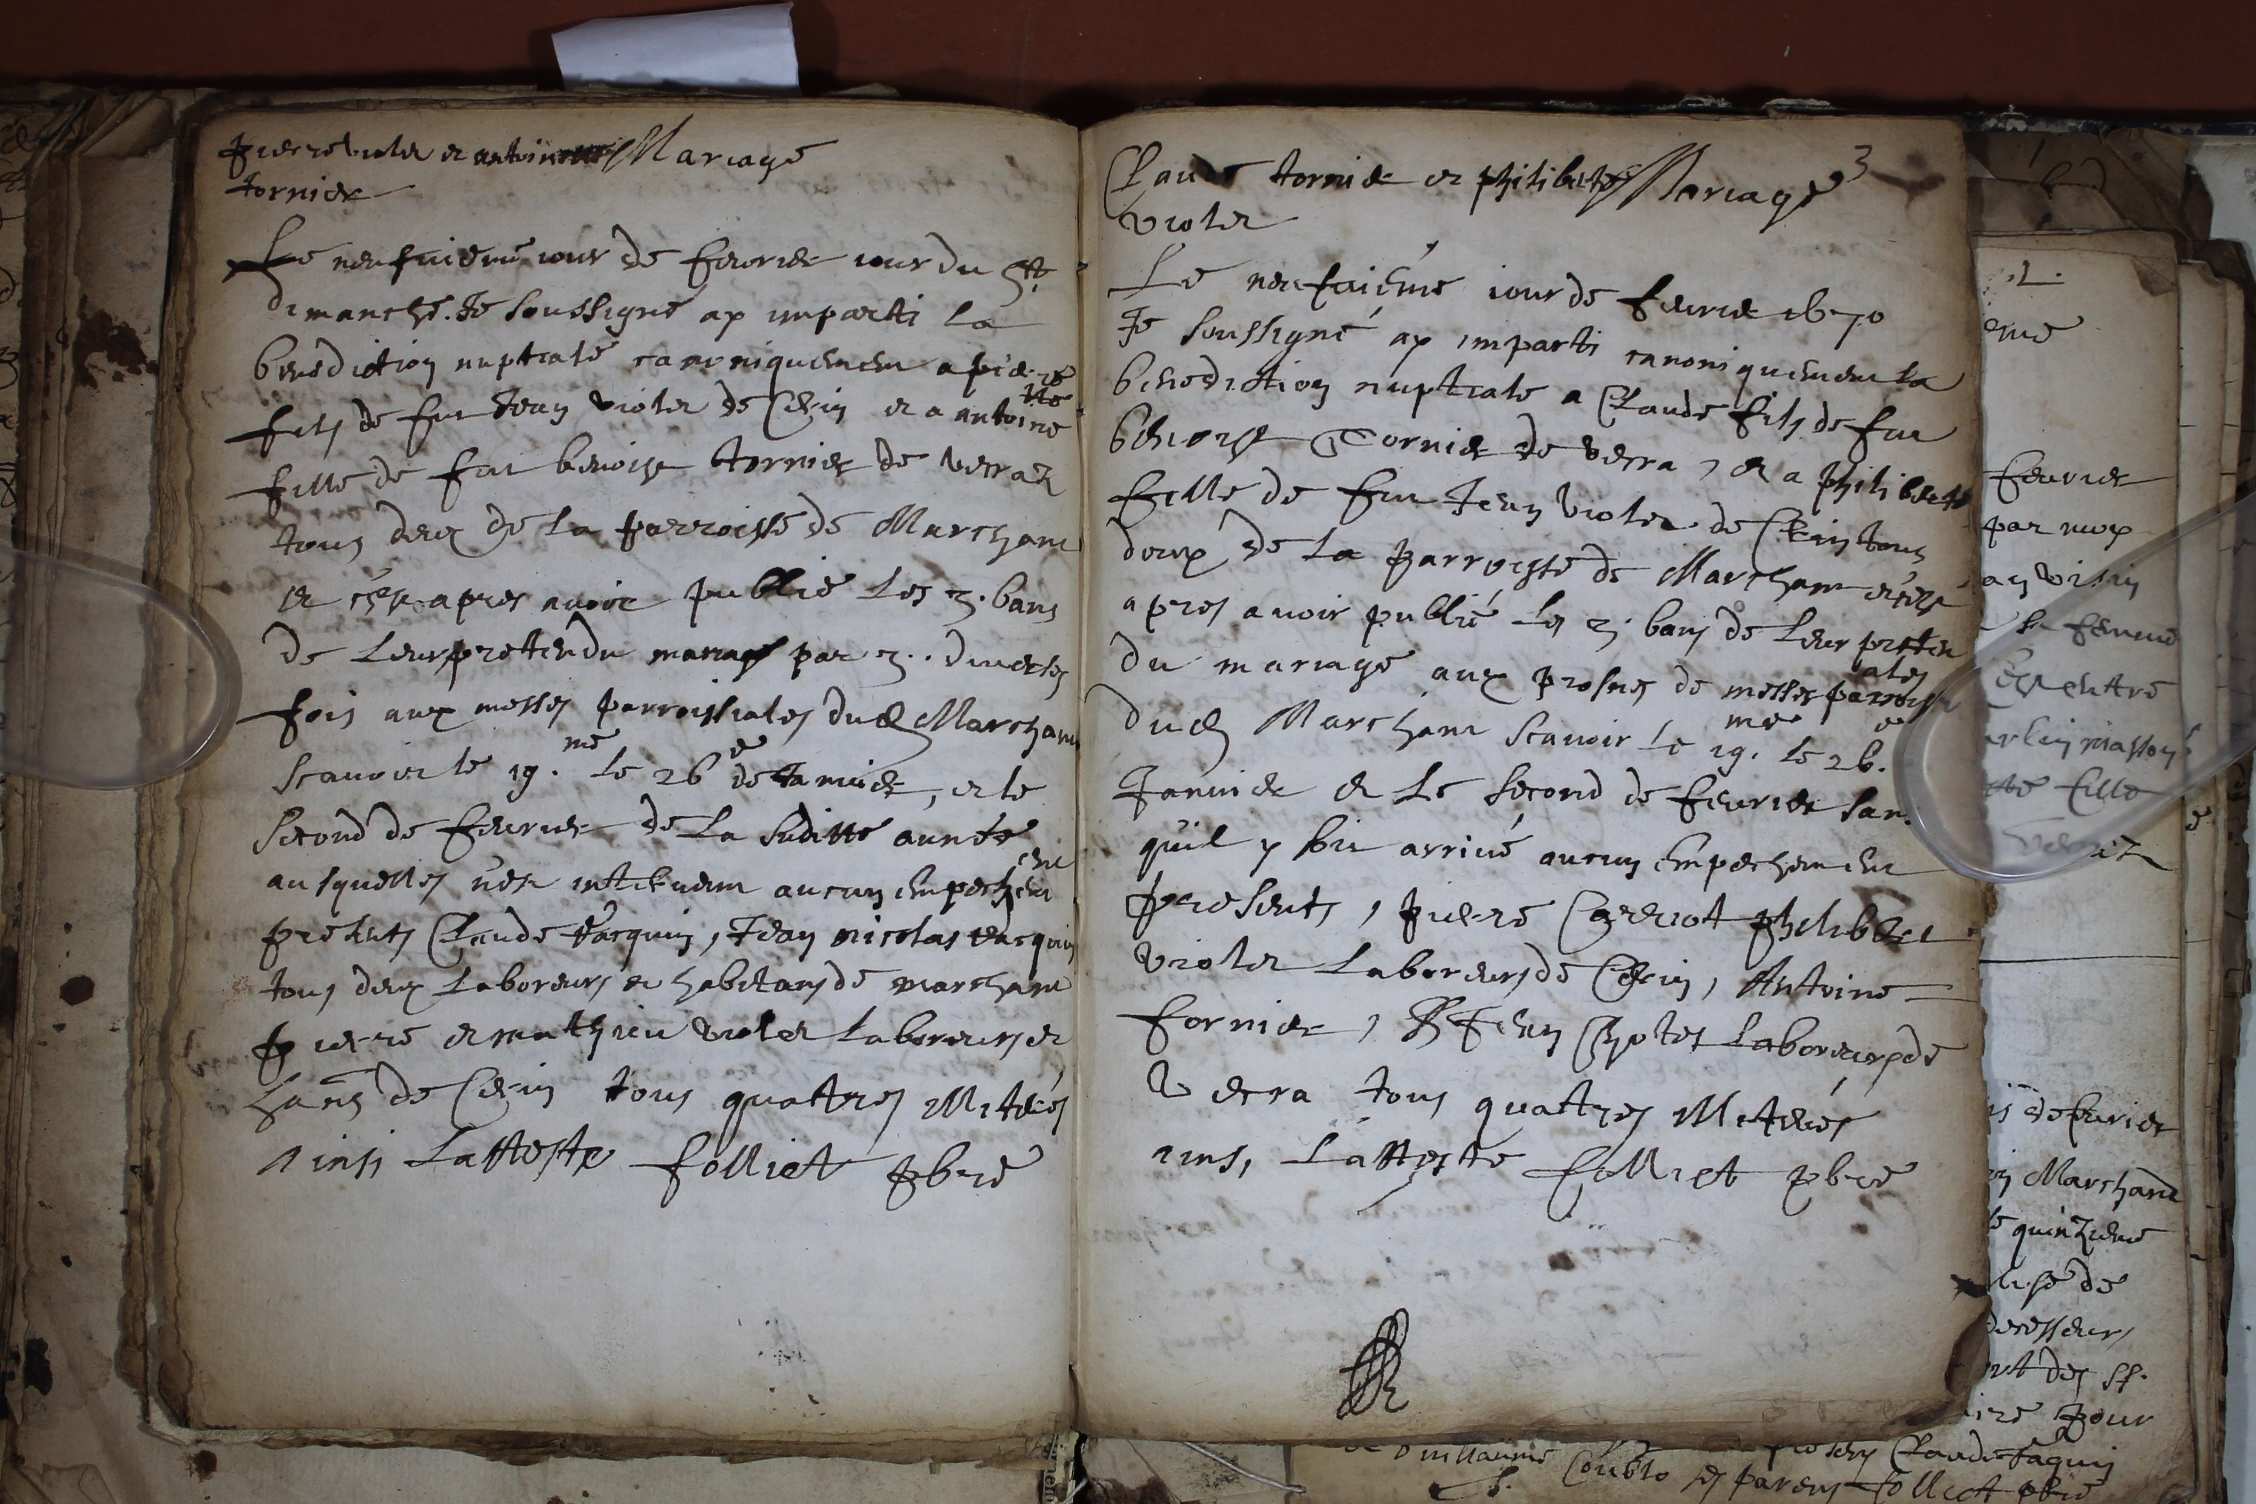 pierre violet et antoinette Mariage
tornier
Le neufuieme iour de feurier iour du St
dimanche. Je soussigné ay imparti la
benediction nuptiale canoniquement a pierre
fils de fut Jean violet de Cerin et a antoinette
fille de fut benoist tornier de verraz
tous deux de la parroisse de Marchant
et c'est apres auoir publié les 3. bans
de leur pretendu mariage par 3. diuerses
fois aux messes parroissiales dud Marchant
scauoir le 19.me le 26e de Januier, et le
second de feurier de la suditte année
ausquelles n'est interuenu aucun empechement
presents Claude Jacquin, Jean nicolas Jacquin
tous deux laboreurs et habitans de marchant
pierre et mathieu violet laboreurs et
hans de Cerin tous quattres illiterés
ainsi Latteste folliet pbre
3
Claude tornier et philiberte Mariage
violet
Le neufuiéme iour de feurier 1670
Je soussigné ay imparti canoniquement la
benediction nuptiale a Claude fils de fut
benoist Tornier de verra, et a philiberte
fille de fut Jean violet de Cerin tous
deux de la parroisse de Marchant et c'est
apres auoir publié les 3. bans de leur preten
du mariage aux prosnes de messes parroissiales
dud Marchant scauoir le 19.me le 26.e
Januier et le second de feurier sans
quil y soit arriué aucun empechement
presents, pierre Carriot philibert
violet laboreurs de Cerin, Antoine
fornier, & Jean laboreurs de
verra tous quattres illiterés
ainsi Latteste folliet pbre
feurier
par moy
femme
entre
fille
de feurier
Marchant
quinzieme
de
des ss.
pour
presens Claude Jaquin
Guillaume ses parens folliet pbre